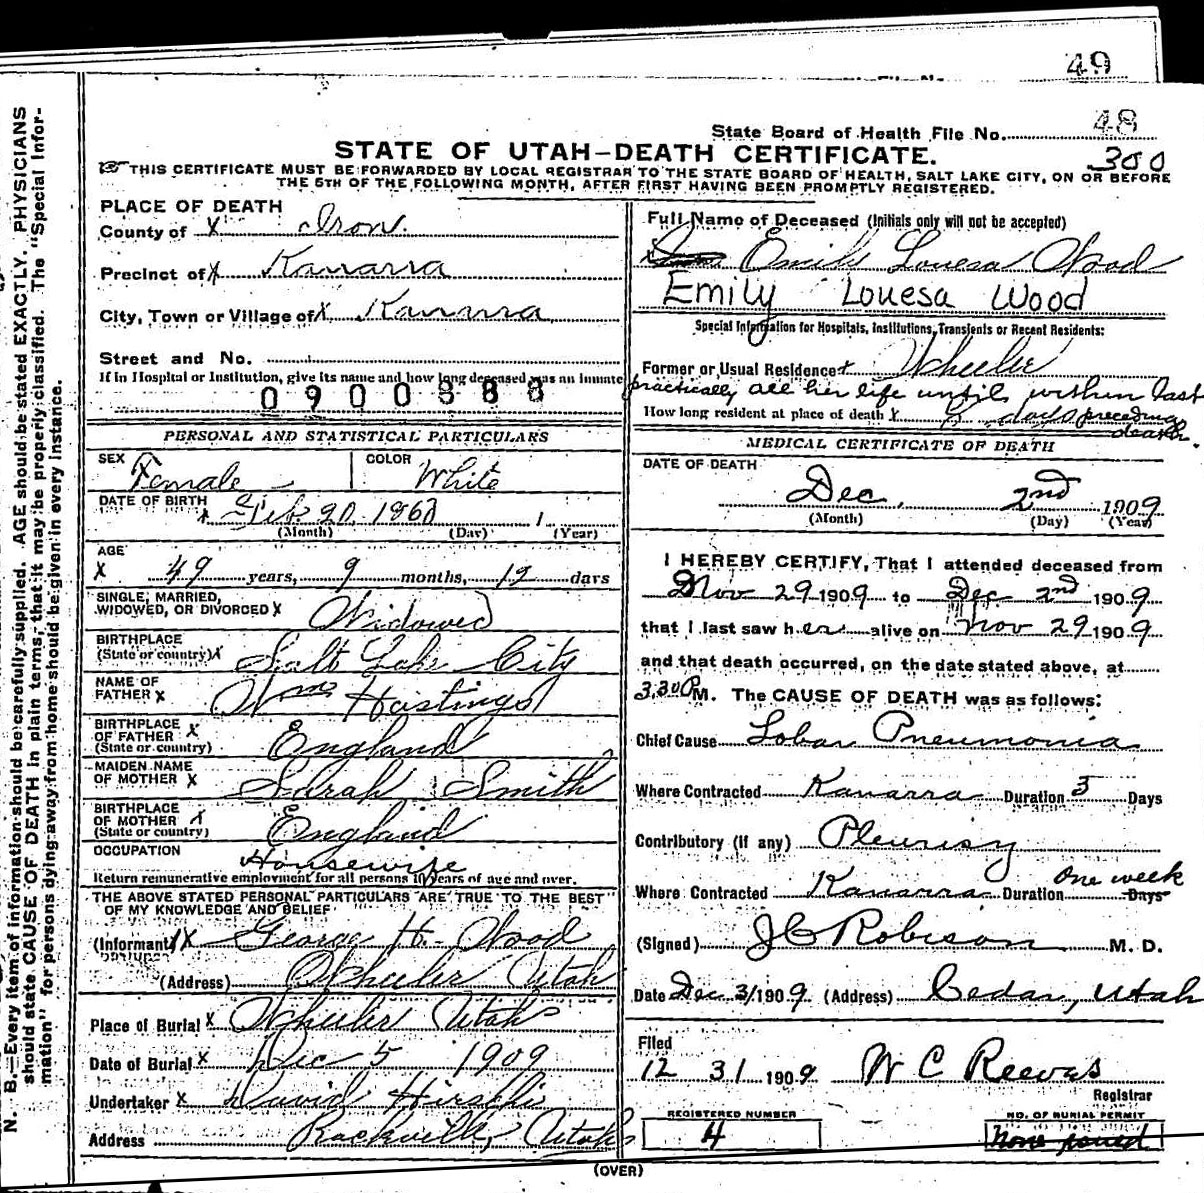 49
State Board of Health File No. 48
STATE OF UTAH—DEATH CERTIFICATE. 300
THIS CERTIFICATE MUST BE FORWARDED BY LOCAL REGISTRAR TO THE STATE BOARD OF HEALTH, SALT LAKE CITY, ON OR BEFORE
THE 5TH OF THE FOLLOWING MONTH, AFTER FIRST HAVING BEEN PROMPTLY REGISTERED.
N. B.—Every item of information should be carefully supplied. AGE should be stated EXACTLY. PHYSICIANS
should state CAUSE OF DEATH in plain terms, that it may be properly classified. The "Special Infor-
mation" for persons dying away from home should be given in every instance.
PLACE OF DEATH
County of X Iron.
Precinct of X Kanarra
City, Town or Village of X Kanarra
Street and No.
If in Hospital or Institution, give its name and how long deceased was an inmate
0900388
PERSONAL AND STATISTICAL PARTICULARS
SEX X Female
COLOR White
DATE OF BIRTH X Feb 20 1860 1
(Month) (Day) (Year)
AGE
X 49 years, 9 months, 12 days
SINGLE, MARRIED,
WIDOWED, OR DIVORCED X Widowed
BIRTHPLACE
(State or country) X Salt Lake City
NAME OF
FATHER X Wm Hastings
BIRTHPLACE
OF FATHER X
(State or country) England
MAIDEN NAME
OF MOTHER X Sarah Smith
BIRTHPLACE
OF MOTHER X
(State or country) England
OCCUPATION
Housewife
Return remunerative employment for all persons 10 years of age and over.
THE ABOVE STATED PERSONAL PARTICULARS ARE TRUE TO THE BEST
OF MY KNOWLEDGE AND BELIEF
(Informant) X George H. Wood
(Address) Wheeler Utah
Place of Burial X Wheeler Utah
Date of Burial X Dec 5 1909
Undertaker X David Hirschi
Address Rockville, Utah
Full Name of Deceased (Initials only will not be accepted)
Emily Louesa Wood
Emily Louesa Wood
Special Information for Hospitals, Institutions, Transients or Recent Residents:
Former or Usual Residence X Wheeler
practically all her life until within last
How long resident at place of death X days preceding
death.
MEDICAL CERTIFICATE OF DEATH
DATE OF DEATH
Dec. 2nd 1909
(Month) (Day) (Year)
I HEREBY CERTIFY, That I attended deceased from
Nov 29 1909 to Dec 2nd 1909
that I last saw her alive on Nov 29 1909
and that death occurred, on the date stated above, at
3,30P M. The CAUSE OF DEATH was as follows:
Chief Cause Lobar Pneumonia
Where Contracted Kanarra Duration 3 Days
Contributory (if any) Pleurisy
Where Contracted Kanarra Duration One week Days
(Signed) J C Robison M. D.
Date Dec 3/1909 (Address) Cedar, Utah
Filed
12 31 1909 W C Reeves
Registrar
REGISTERED NUMBER
4
NO. OF BURIAL PERMIT
None issued
(OVER)